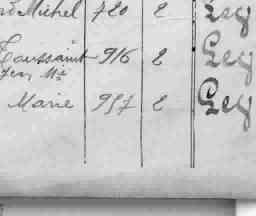 Michel 720 2 Ley
Toussaint 916 2 Ley
Jean Me
Marie 957 2 Ley